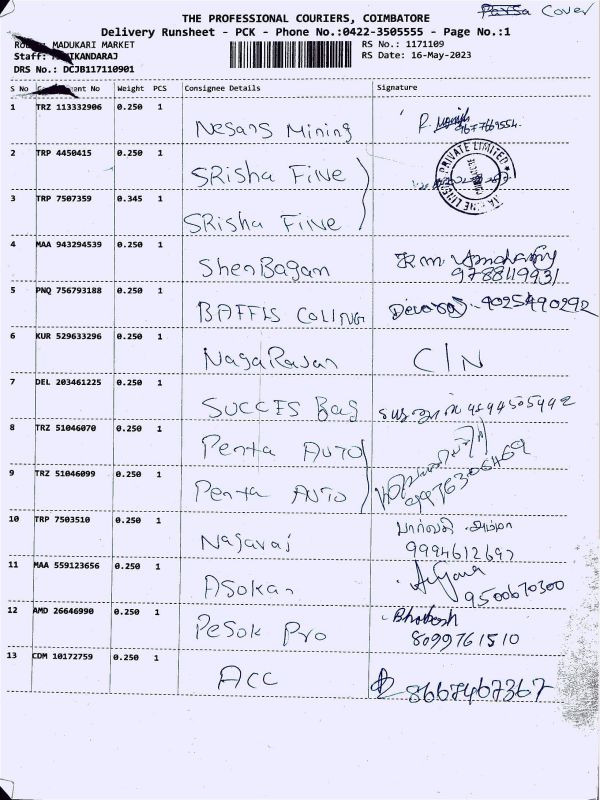 Cover
THE PROFESSIONAL COURIERS, COIMBATORE
Delivery Runsheet - PCK - Phone No.:0422-3505555 - Page No.:1
MADUKARI MARKET
RS No.: 1171109
Staff: KANDARAJ
RS Date: 16-May-2023
DRS No.: DCJB117110901
S No No Weight PCS Consignee Details Signature
1 TRZ 113332906 0.250 1 Nesans Mining 9677669554
2 TRP 4450415 0.250 1 SRisha Fine PRIVATE LIMITED
3 TRP 7507359 0.345 1 SRisha Fine
4 MAA 943294539 0.250 1 ShenBagam 9788119931
5 PNQ 756793188 0.250 1 BAFFLS COLING 9025490292
6 KUR 529633296 0.250 1 NagaRajan C/N
7 DEL 203461225 0.250 1 SUCCES Bag 9894505992
8 TRZ 51046070 0.250 1 Penta AUTO
9 TRZ 51046099 0.250 1 Penta AUTO 9976306469
10 TRP 7503510 0.250 1 Nagavaj பார்வதி அம்மா
9994612697
11 MAA 559123656 0.250 1 ASokan 9500670300
12 AMD 26646990 0.250 1 PeSok Pro Bhabesh
8099761510
13 CDM 10172759 0.250 1 ACC 8667467367